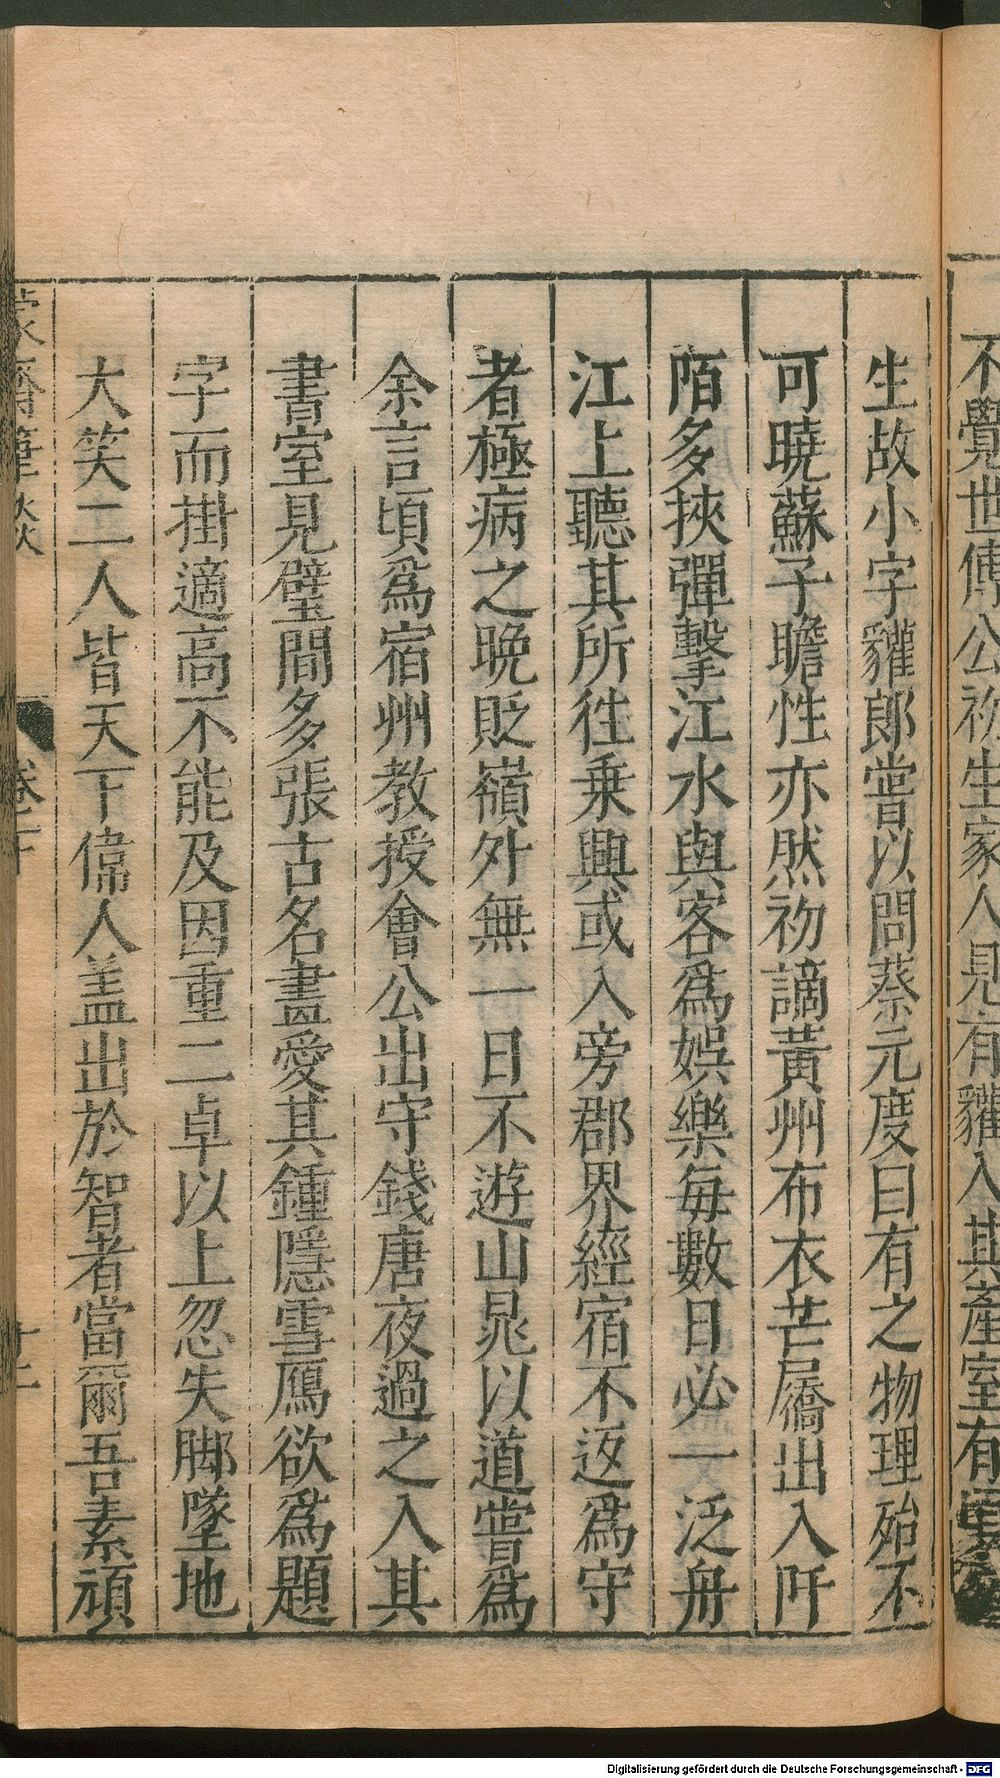 不覺世傅公初生家人見有貛入其產室有
生故小字貛郎嘗以問蔡元度曰有之物理殆不
可曉蘇子瞻性亦然初謫黃州布衣芒屩出入阡
陌多挾彈擊江水與客爲娛樂每數日必一泛舟
江上聽其所徃乗興或入旁郡界經宿不返爲守
者極病之晚貶嶺外無一日不遊山晁以道嘗爲
余言頃爲宿州教授會公出守錢唐夜過之入其
書室見壁間多張古名畫愛其鍾隱雪鴈欲爲題
字而掛適高不能及因重二卓以上忽失脚墜地
大笑二人皆天下偉人盖出於智者當爾吾素頑
蒙齋筆談
卷下
十二
Digitalisierung gefördert durch die Deutsche Forschungsgemeinschaft - DFG